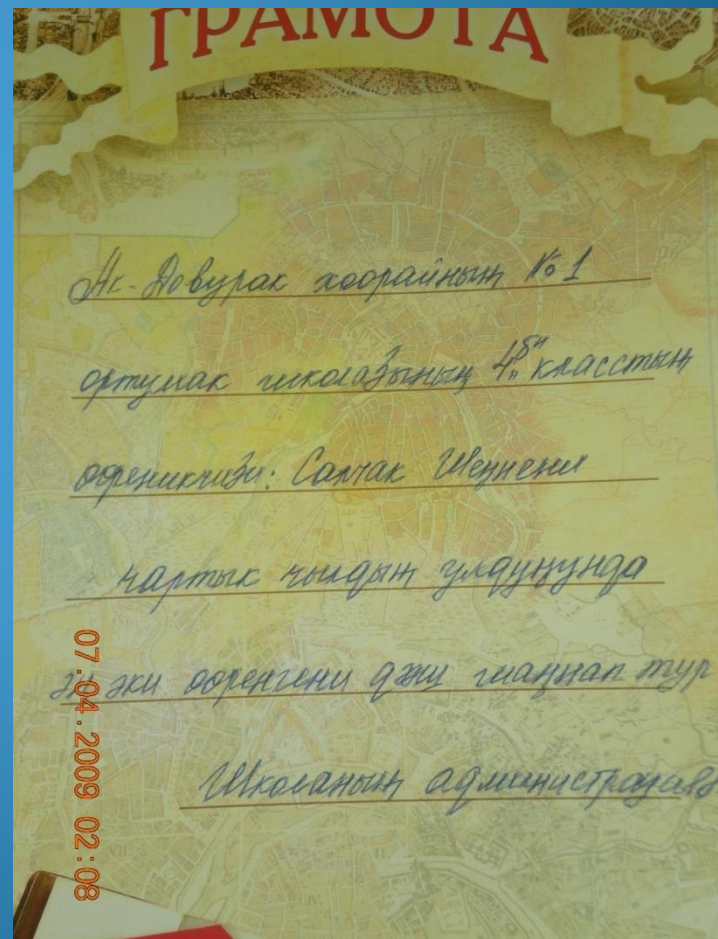 ГРАМОТА
Ак-Довурак хоорайның № 1
ортумак школазының 4 "б" класстың
өөреникчизи: Салчак Шеңнени
чартык чылдың үлдүңүнде
эң эки өөренгени дээш шаңнап тур
Школаның
07.04.2009 02:08